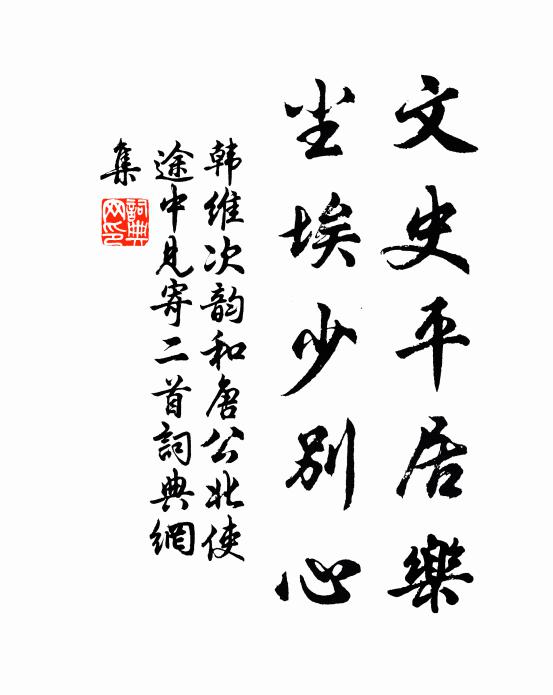 文史平居樂
尘埃少別心
韩維次韵和唐公北使
途中見寄二首詞典網
集
詞典网印